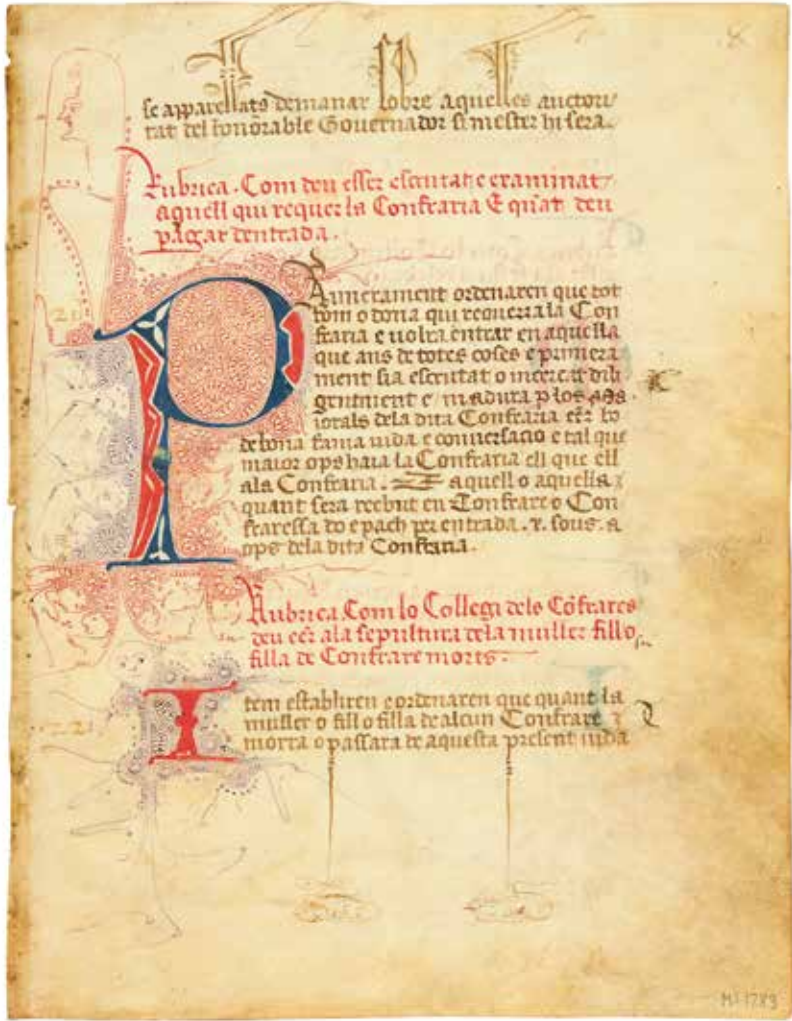 se apparellats demanar sobre aquelles auctori
tat del honorable Governador si mester hi sera.
Rubrica. Com deu esser escrutat e examinat
aquell qui requer la Confraria E quāt deu
pagar dentrada.
Primerament ordenaren que tot
hom o dona qui requerra la Con
fraria e volra entrar en aquella
que ans de totes coses e primera
ment sia escrutat o encercat dili
gentment e madura p los
iorals dela dita Confraria eēr ho
de bona fama vida e conversacio e tal que
maior ops haia la Confraria ell que ell
ala Confraria. aquell o aquella
quant sera reebut en Confrare o Con
fraressa do e pach per entrada .x. sous. a
ops dela dita Confraria.
Rubrica Com lo Collegi dels Cōfrares
deu eēr ala sepultura dela muller fill o
filla de Confrare morts.
Item establiren e ordenaren que quant la
muller o fill o filla de alcun Confrare
morra o passara de aquesta present vida
21
22
MS 1789